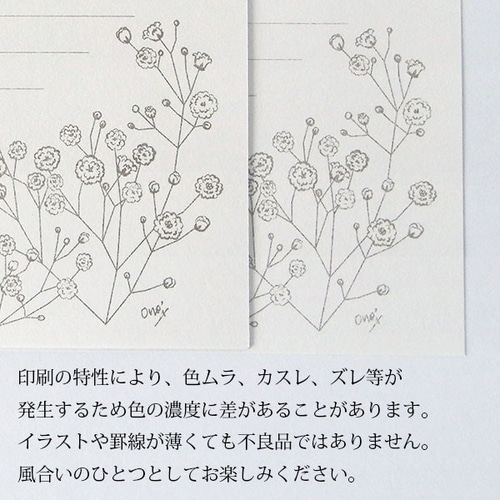 one's
one's
印刷の特性により、色ムラ、カスレ、ズレ等が
発生するため色の濃度に差があることがあります。
イラストや罫線が薄くても不良品ではありません。
風合いのひとつとしてお楽しみください。